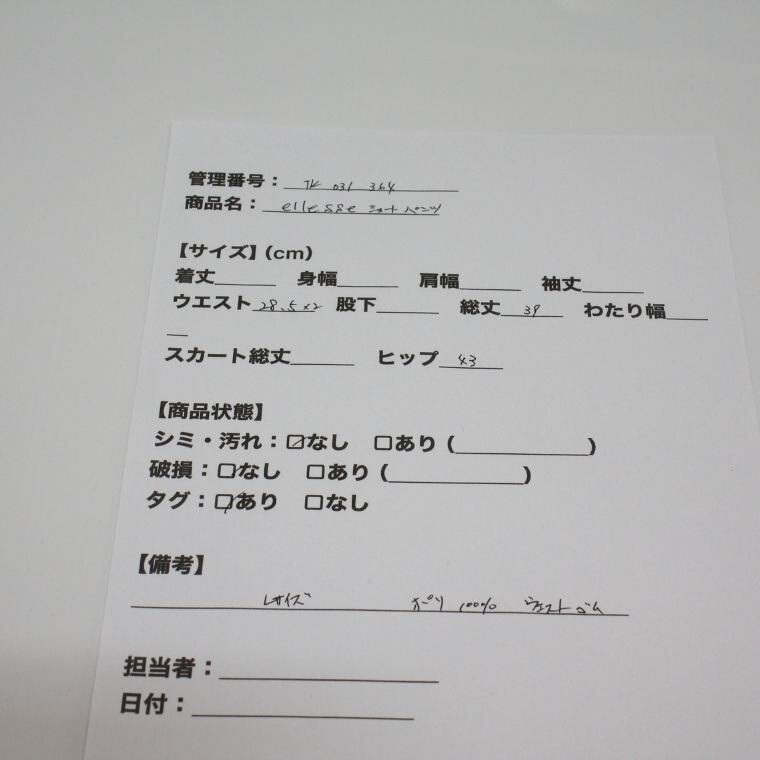 管理番号：TK 031 364
商品名：ellesse ショートパンツ
【サイズ】(cm)
着丈 身幅 肩幅 袖丈
ウエスト 28.5×2 股下 総丈 39 わたり幅
スカート総丈 ヒップ 43
【商品状態】
シミ・汚れ：☑なし □あり ( )
破損：☑なし □あり ( )
タグ：☑あり □なし
【備考】
Lサイズ ポリ 100% ウエストゴム
担当者：
日付：